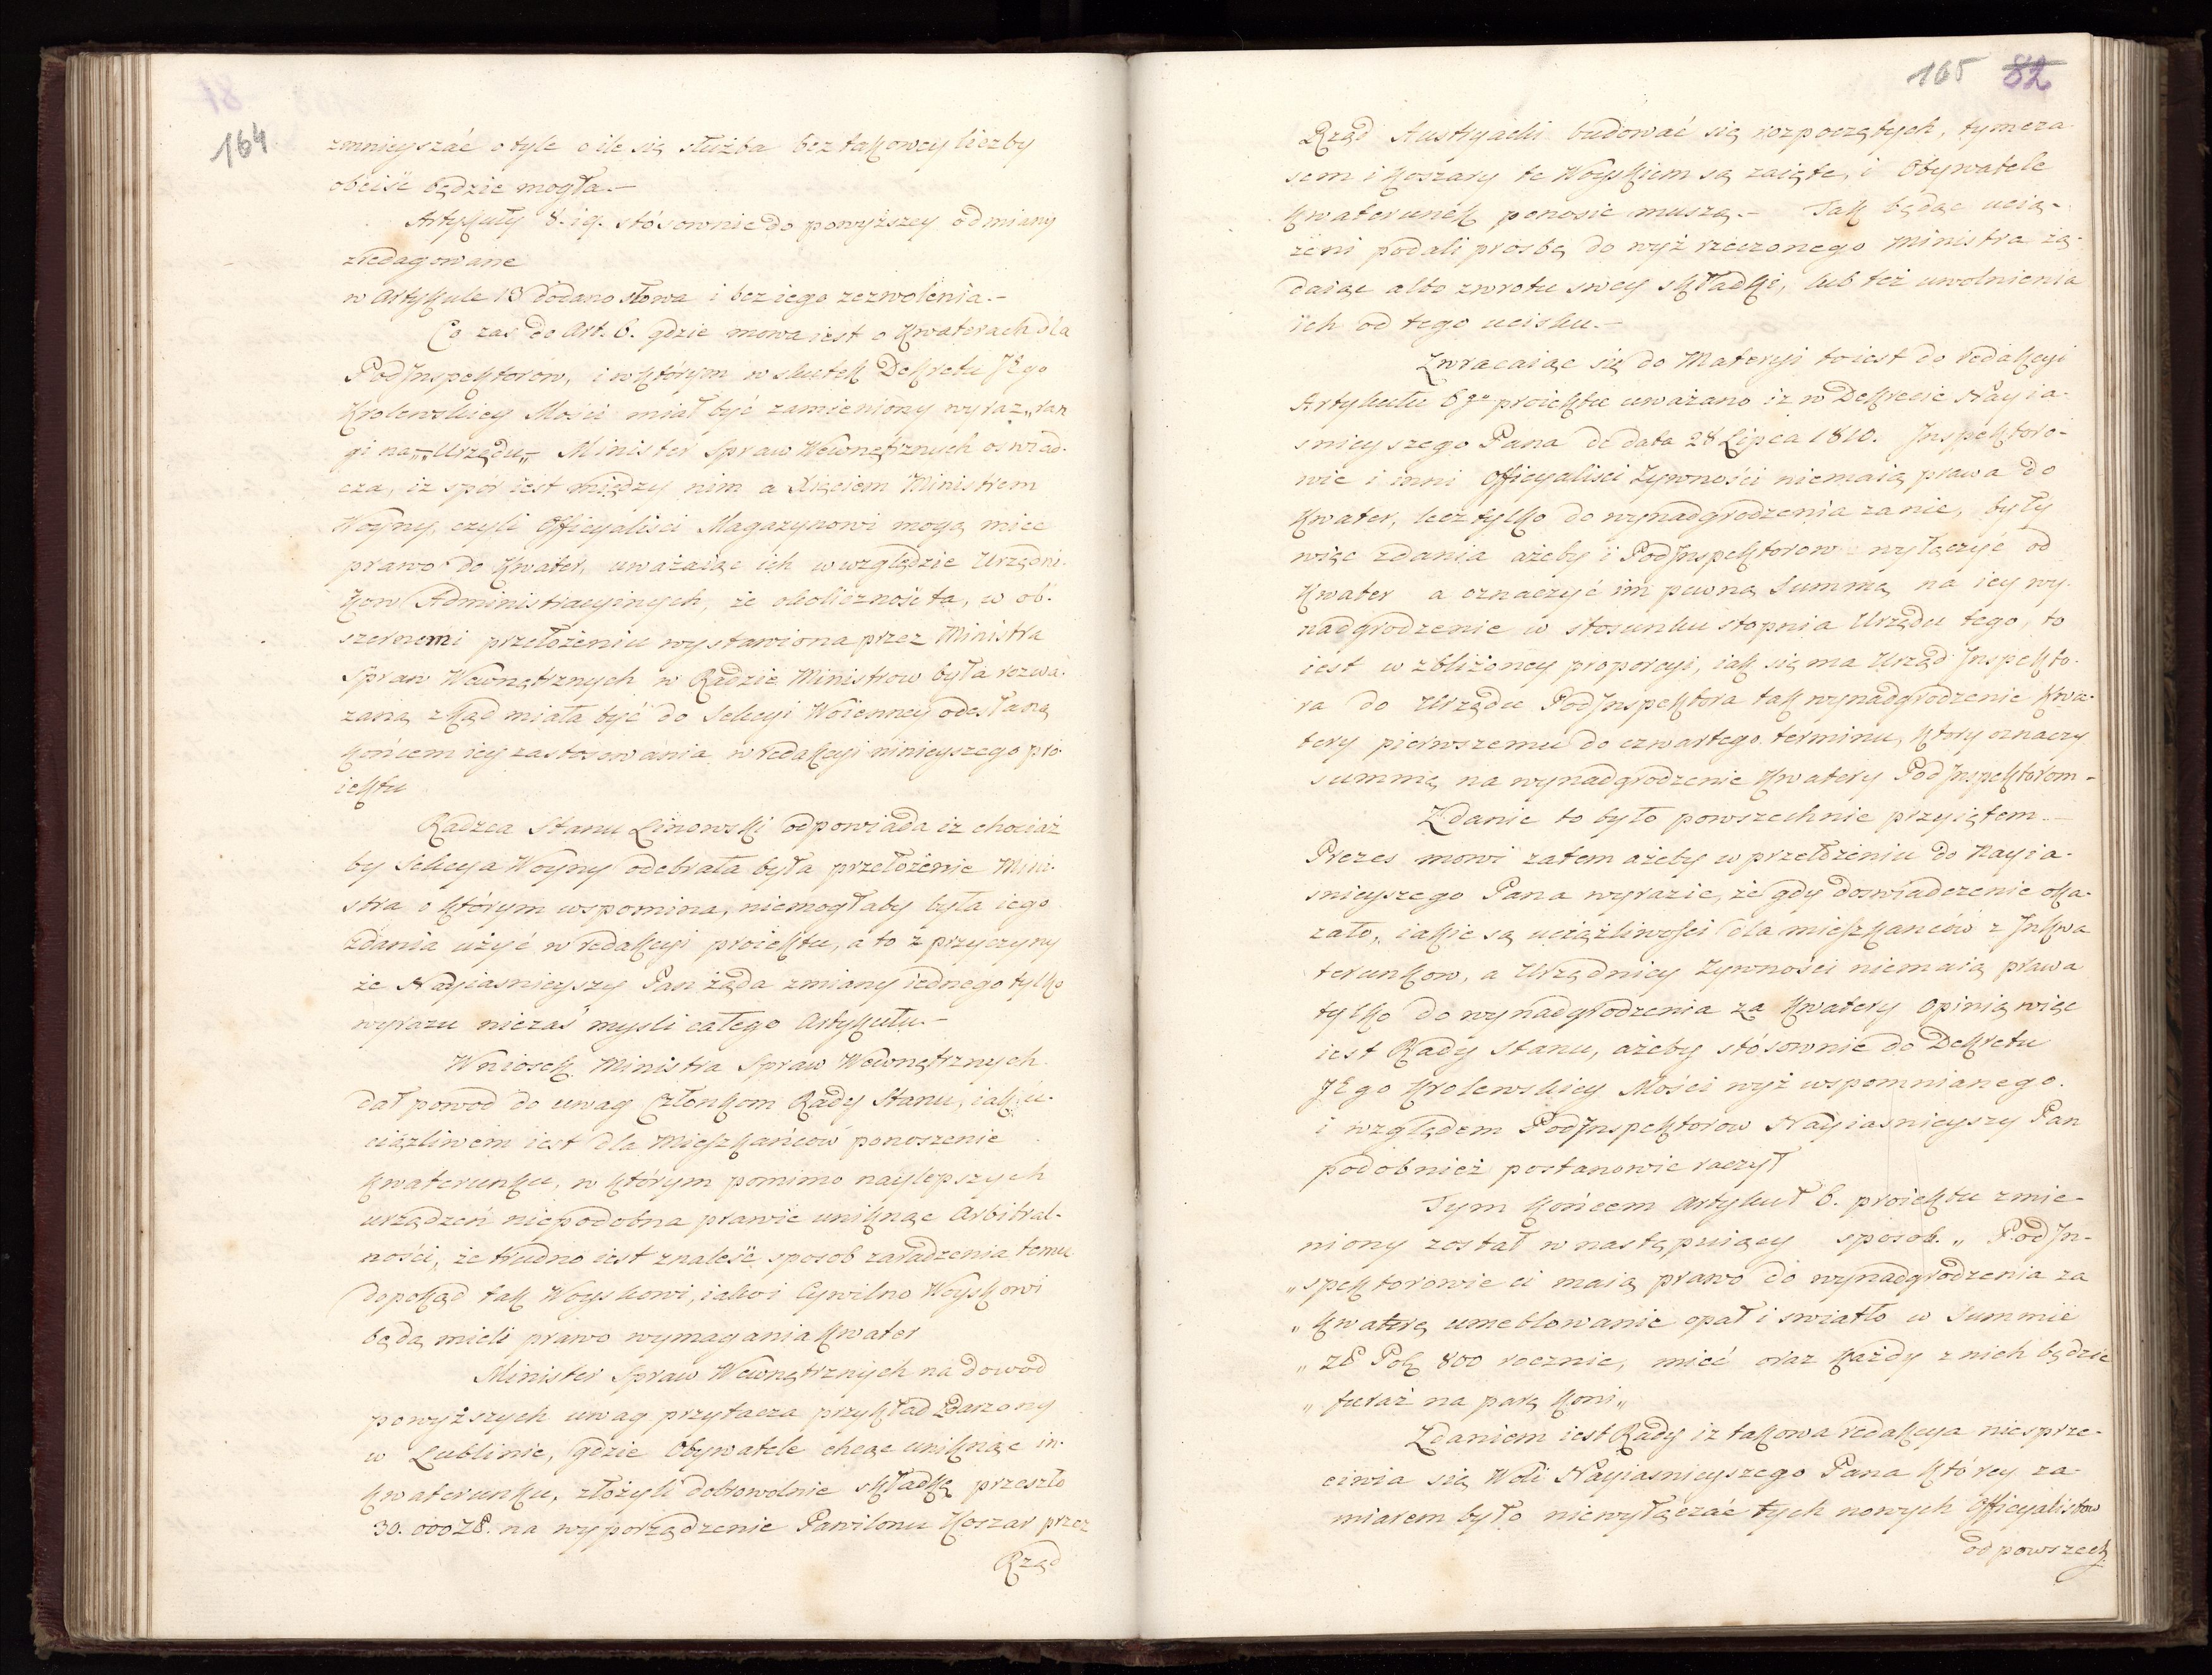 164
zmnieyszać o tyle o ile się służba bez takowey liczby
obeiść będzie mogła.—
Artykuły 8. i 9. stósownie do powyższey odmiany
zredagowane
w Artykule 13 dodano słowa i bez iego zezwolenia.—
Co zas do Art. 6. gdzie mowa iest o Kwaterach dla
PodInspektorow, i w którym w skutek Dekretu JEgo
Krolewskiey Mości miał być zamieniony wyraz „ran
gi na „Urzędu„ Minister Spraw Wewnętrznych oswiad-
cza, iz spor iest między nim a Xięciem Ministrem
Woyny, czyli Officyaliści Magazynowi mogą miec
prawo do Kwater, uważaiąc ich w względzie Urzędni-
kow Administracyinych, że okoliczność ta, w ob-
szernemi przełożeniu wystawiona przez Ministra
Spraw Wewnętrznych w Radzie Ministrow była rozwa-
żaną zkąd miała być do Sekcyi Woienney odesłaną
końcem iey zastosowania w redakcyi ninieyszego pro-
iektu
Radzca Stanu Linowski odpowiada iz chociaż
by Sekcya Woyny odebrała była przełożenie Mini-
stra o którym wspomina, niemogłaby była iego
zdania użyć w redakcyi proiektu, a to z przyczyny
że Nayiasnieyszy Pan żąda zmiany iednego tylko
wyrazu niezaś mysli całego Artykułu.—
Wniosek Ministra Spraw Wewnętrznych
dał powod do uwag Członkom Rady Stanu, iak u-
ciążliwem iest dla Mieszkańców ponoszenie
kwaterunku, w którym pomimo naylepszych
urządzeń niepodobna prawie uniknąc Arbitral-
ności, że trudno iest znaleść sposob zaradzenia temu
dopokąd tak Woyskowi, iako i Cywilno Woyskowi
będą mieli prawo wymagania kwater
Minister Spraw Wewnętrznych na dowod
powyższych uwag przytacza przykład zdarzony
w Lublinie, gdzie Obywatele chcąc uniknąc in-
kwaterunku, złożyli dobrowolnie składkę przeszło
30.000 Zł. na wyporządzenie Pawilonu Koszar przez
Rząd
165 82
Rząd Austryacki budować się rozpoczętych, tymcza
sem i koszary te Woyskiem są zaięte, i Obywatele
kwaterunek ponosic muszą.— Tak będąc ucią-
żeni podali prosbę do wyż rzeczonego Ministra żą-
daiąc albo zwrotu swey składki, lub też uwolnienia
ich od tego ucisku.—
Zwracaiąc się do Materyi to iest do redakcyi
Artykułu 6go proiektu uważano iz w Dekrecie Nayia-
snieyszego Pana de data 28 Lipca 1810. Inspektoro-
wie i inni Officyaliści Zywności niemaią prawa do
Kwater, lecz tylko do wynadgrodzenia za nie, były
więc zdania ażeby i PodInspektorow wyłączyć od
Kwater a oznaczyć im pewną Summę na iey wy-
nadgrodzenie w stosunku stopnia Urzędu tego, to
iest w zbliżoney proporcyi, iak się ma Urząd Inspekto-
ra do Urzędu PodInspektora tak wynadgrodzenie kwa-
tery pierwszemu do czwartego terminu, ktory oznaczy
summę na wynadgrodzenie Kwatery PodInspektorom-
Zdanie to było powszechnie przyiętem.—
Prezes mowi zatem ażeby w przełożeniu do Nayia-
snieyszego Pana wyrazic, że gdy doswiadczenie oka-
zało, iakie są uciążliwości dla mieszkanców z Inkwa
terunkow, a Urzędnicy Zywności niemaią prawa
tylko do wynadgrodzenia za kwatery Opinią więc
iest Rady Stanu, ażeby stósownie do Dekretu
JEgo Krolewskiey Mości wyż wspomnianego.
i względem PodInspektorow Nayiasnieyszy Pan
podobnież postanowic raczył
Tym końcem Artykuł 6. proiektu zmie-
niony został w następuiący sposob. „ PodIn-
„spektorowie ci maią prawo do wynadgrodzenia za
„ kwaterę umeblowanie opał i swiatło w Summie
„ Zł Pol 800 rocznie, mieć oraz każdy z nich będzie
„ furaż na parę koni„
Zdaniem iest Rady iz takowa redakcya niesprze-
ciwia się Woli Nayiasnieyszego Pana którey za
miarem było niewyłączać tych nowych Officyalistow
od powszech